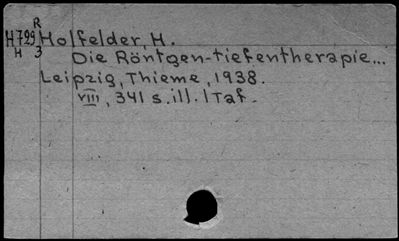 R
H729 Holfelder, H.
H 3 Die Röntgen-tiefentherapie...
Leipzig, Thieme, 1938.
VIII, 341 s. ill. 1 Taf.